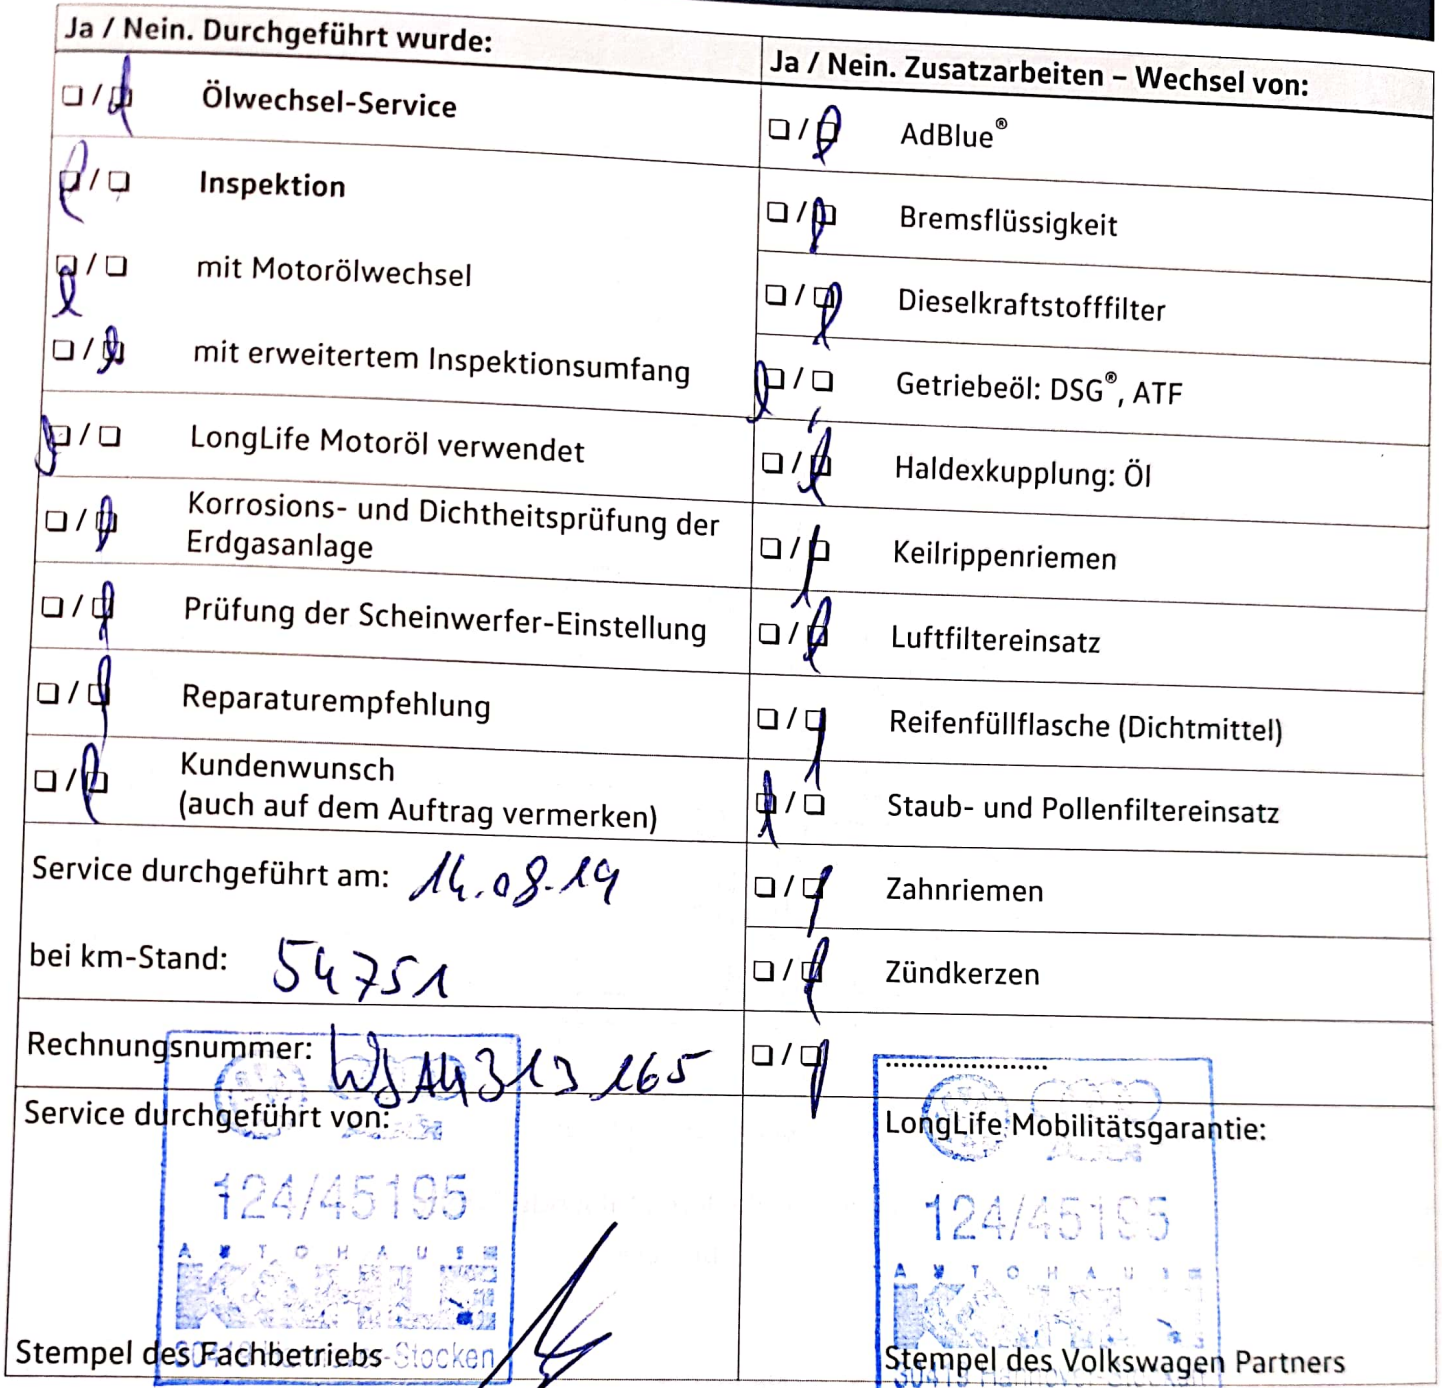 Ja / Nein. Durchgeführt wurde:
☐ / ☒ Ölwechsel-Service
☒ / ☐ Inspektion
☒ / ☐ mit Motorölwechsel
☐ / ☒ mit erweitertem Inspektionsumfang
☒ / ☐ LongLife Motoröl verwendet
☐ / ☒ Korrosions- und Dichtheitsprüfung der
Erdgasanlage
☐ / ☒ Prüfung der Scheinwerfer-Einstellung
☐ / ☒ Reparaturempfehlung
☐ / ☒ Kundenwunsch
(auch auf dem Auftrag vermerken)
Service durchgeführt am: 14.08.19
bei km-Stand: 54751
Rechnungsnummer:
Service durchgeführt von:
124/45195
AUTOHAUS
Stempel des Fachbetriebs
Stocken
Ja / Nein. Zusatzarbeiten – Wechsel von:
☐ / ☒ AdBlue®
☐ / ☒ Bremsflüssigkeit
☐ / ☒ Dieselkraftstofffilter
☒ / ☐ Getriebeöl: DSG®, ATF
☐ / ☒ Haldexkupplung: Öl
☐ / ☒ Keilrippenriemen
☐ / ☒ Luftfiltereinsatz
☐ / ☒ Reifenfüllflasche (Dichtmittel)
☒ / ☐ Staub- und Pollenfiltereinsatz
☐ / ☒ Zahnriemen
☐ / ☒ Zündkerzen
☐ / ☒ ....................
LongLife Mobilitätsgarantie:
124/45195
AUTOHAUS
Stempel des Volkswagen Partners